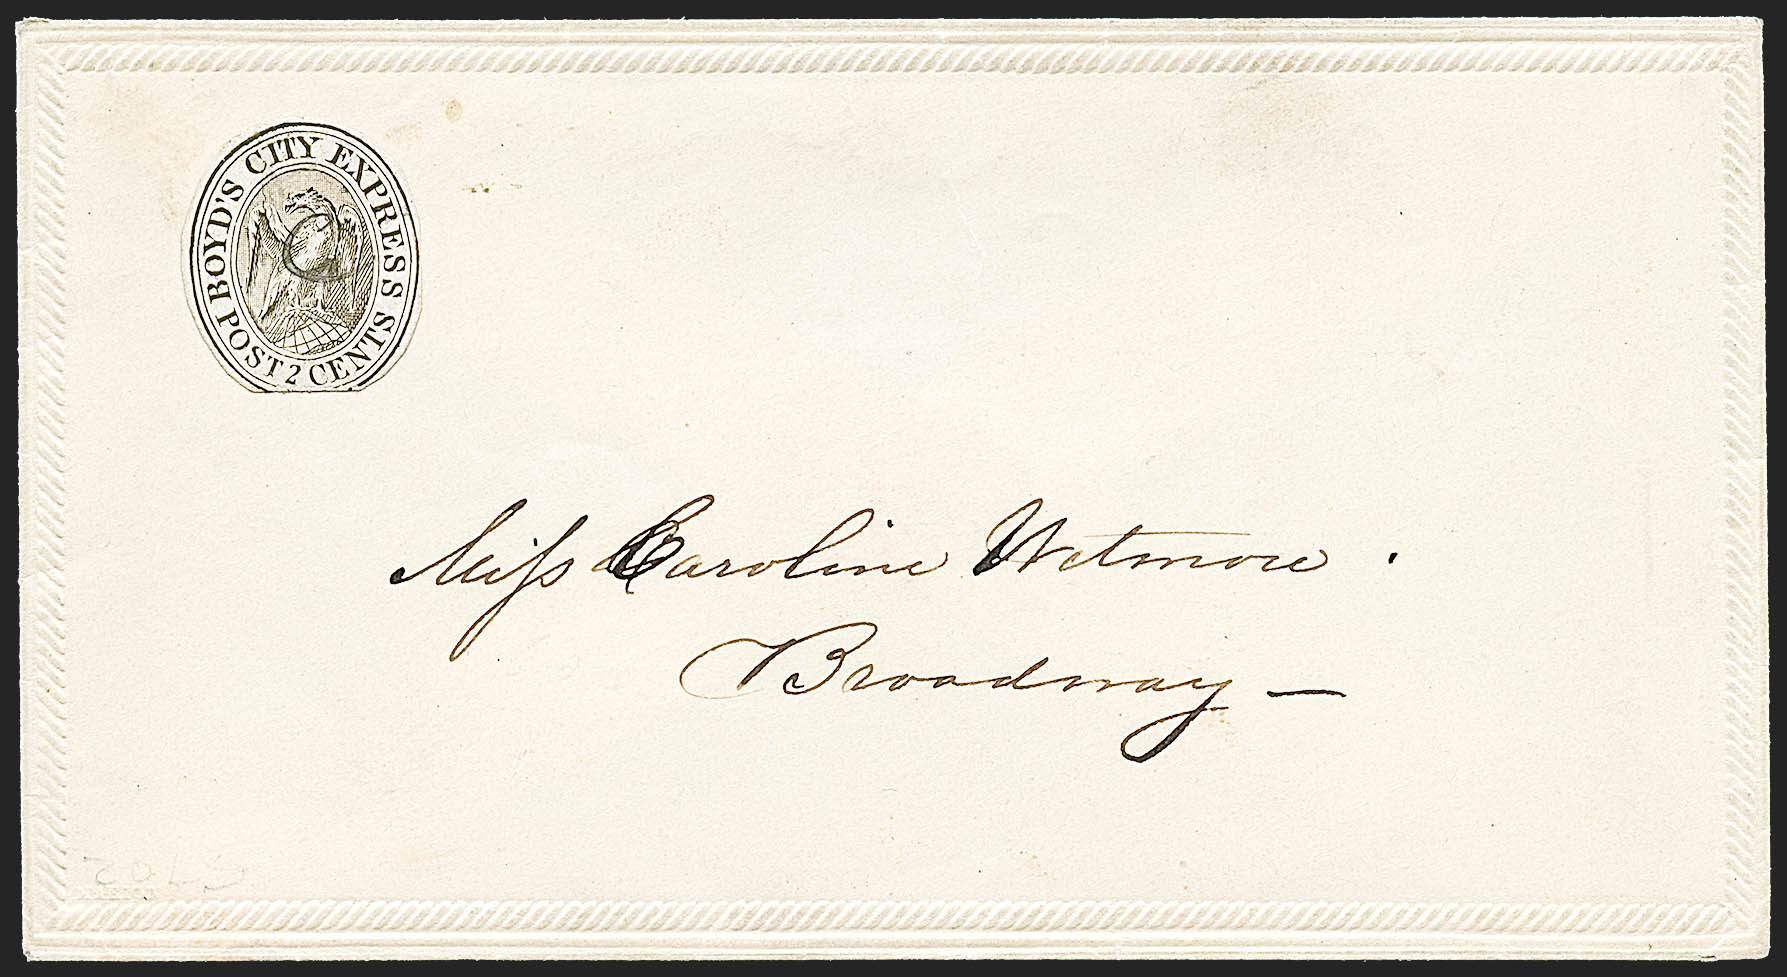 BOYD'S CITY EXPRESS
POST 2 CENTS
Miss Caroline Wetmore.
Broadway —